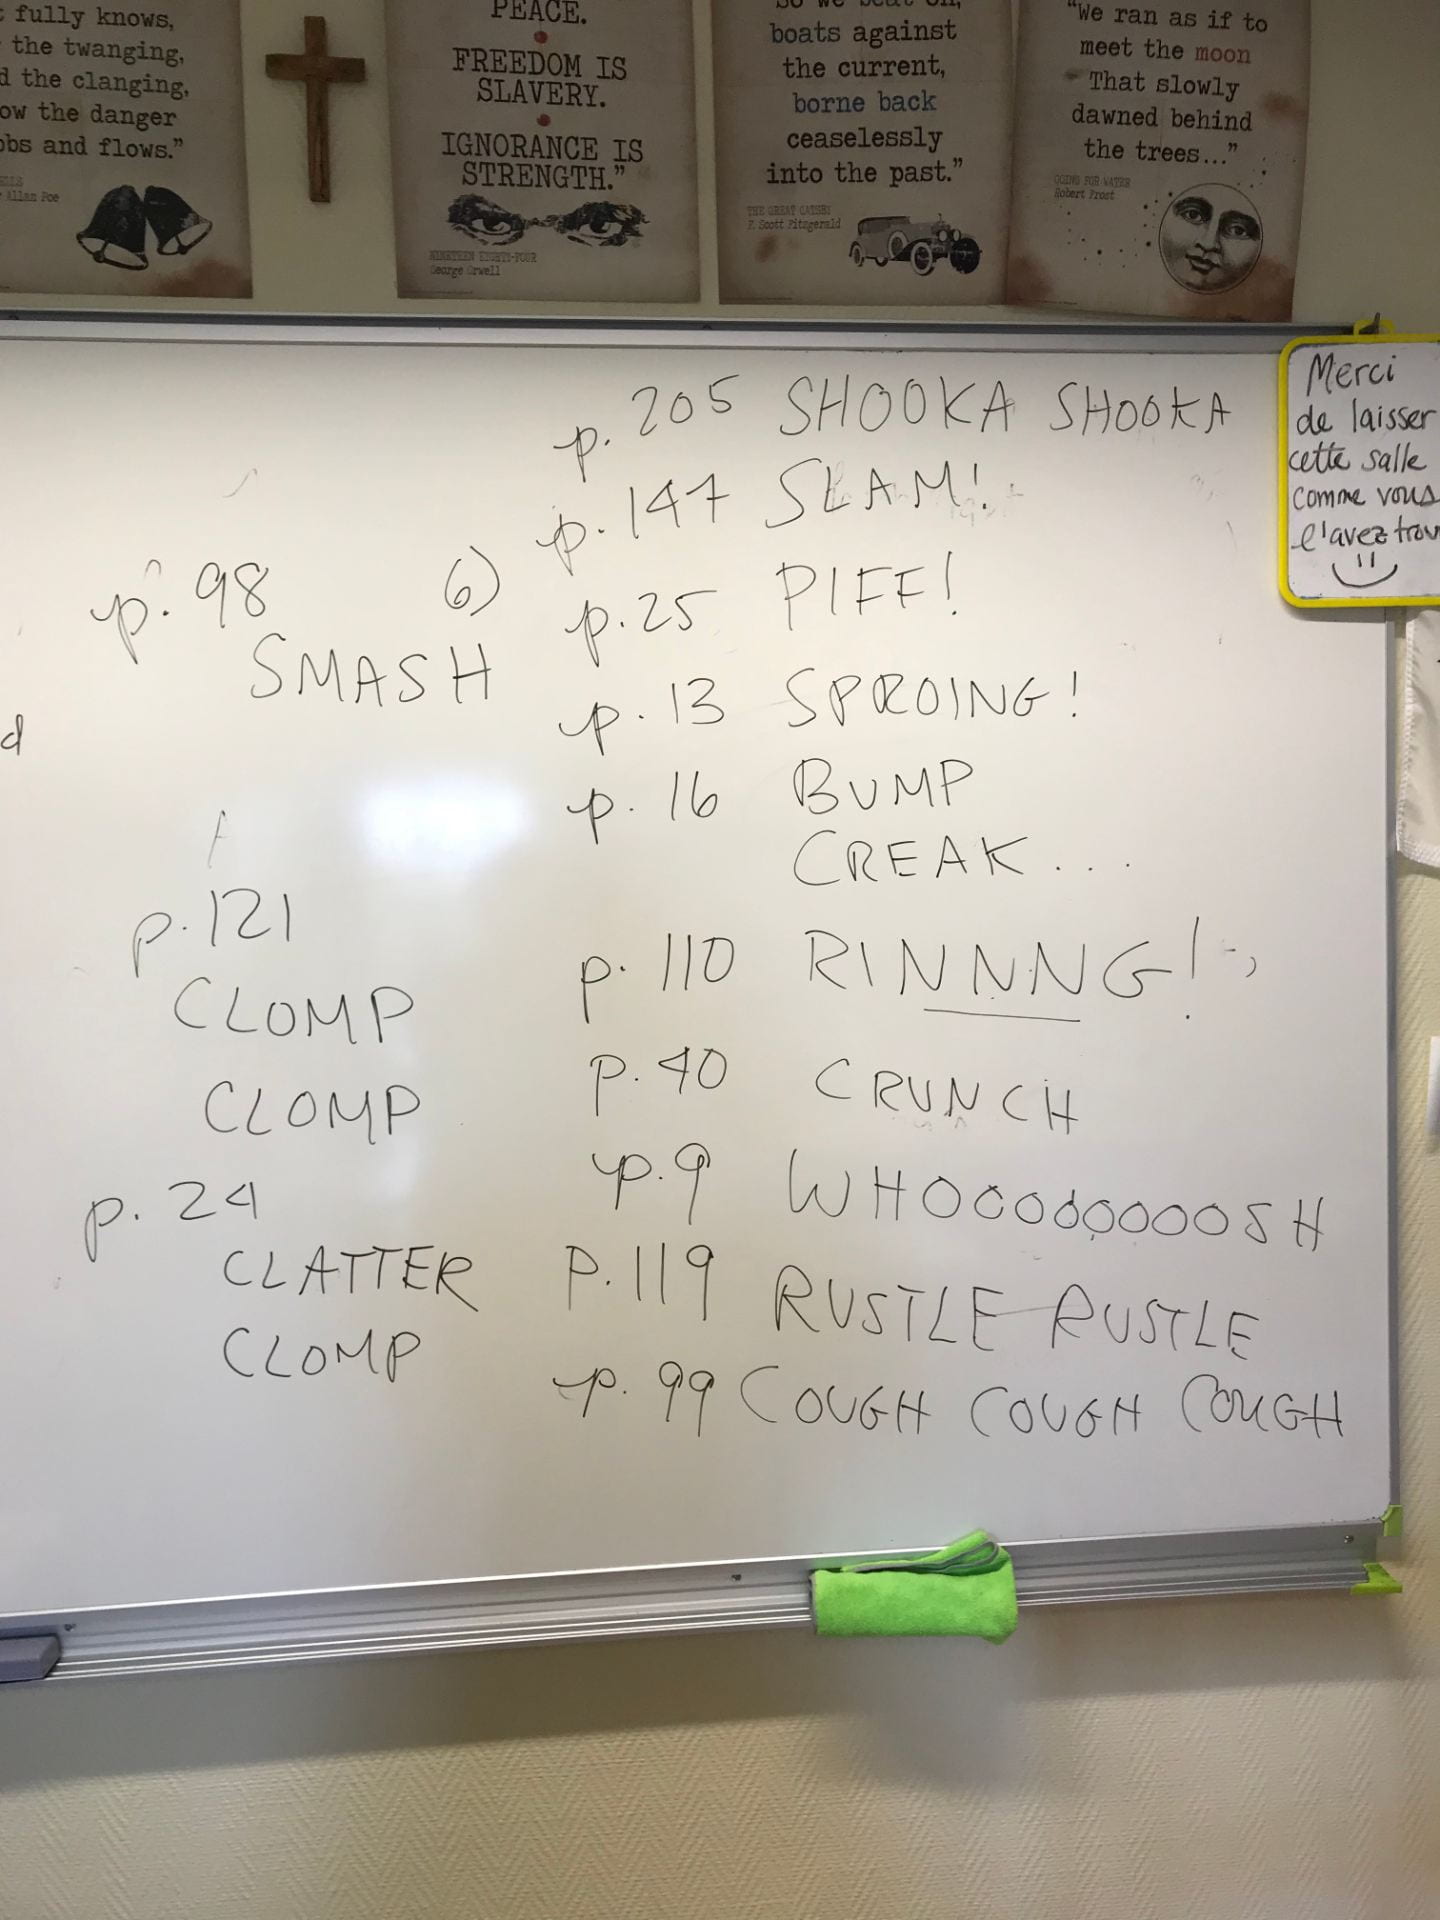 fully knows,
the twanging,
the clanging,
the danger
and flows.”
Allan Poe
PEACE.
FREEDOM IS
SLAVERY.
IGNORANCE IS
STRENGTH.”
NINETEEN EIGHTY-FOUR
George Orwell
boats against
the current,
borne back
ceaselessly
into the past.”
THE GREAT GATSBY
F. Scott Fitzgerald
“We ran as if to
meet the moon
That slowly
dawned behind
the trees...”
GOING FOR WATER
Robert Frost
Merci
de laisser
cette salle
comme vous
l'avez
p. 98
SMASH
d
p. 121
CLOMP
CLOMP
p. 24
CLATTER
CLOMP
6)
p. 205 SHOOKA SHOOKA
p. 147 SLAM!
p. 25 PIFF!
p. 13 SPROING!
p. 16 BUMP
CREAK...
p. 110 RINNNG!
p. 40 CRUNCH
p. 9 WHOOOOOOOOSH
P. 119 RUSTLE RUSTLE
p. 99 COUGH COUGH COUGH